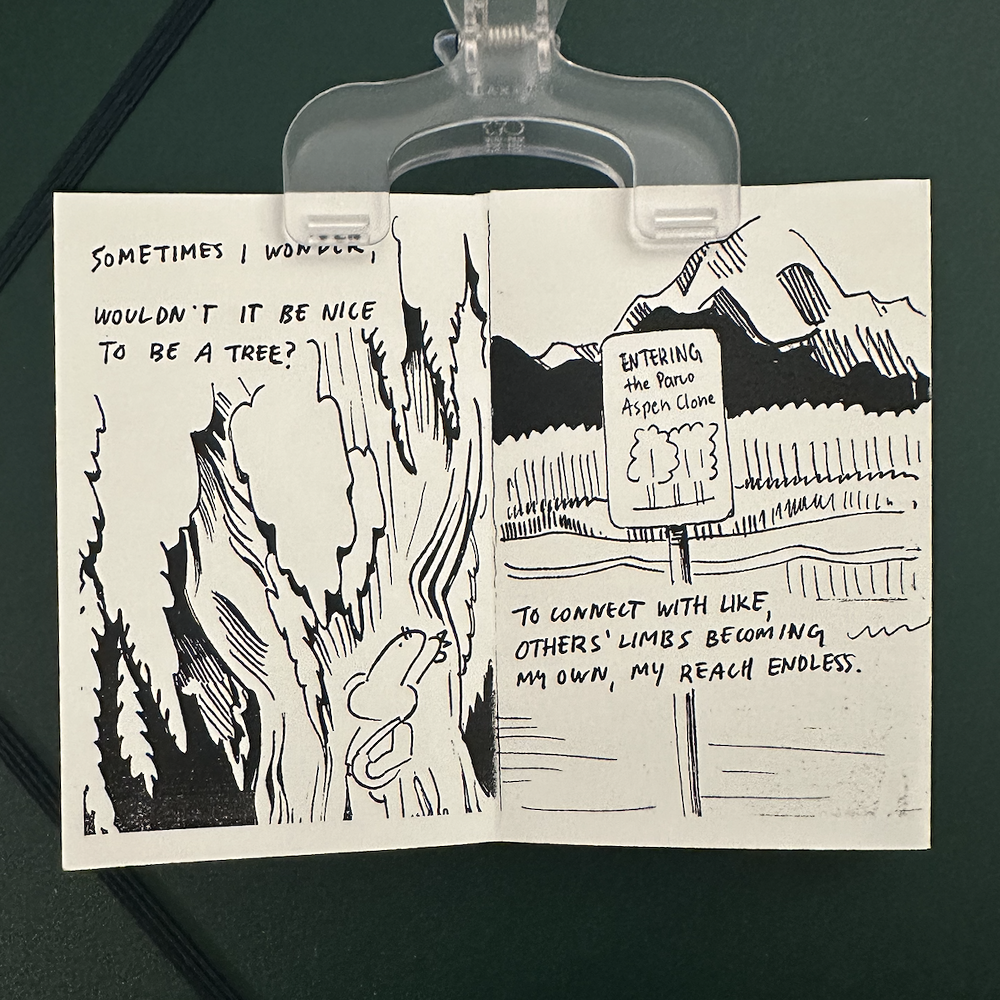 SOMETIMES I WONDER,
WOULDN'T IT BE NICE
TO BE A TREE?
ENTERING
the Pando
Aspen Clone
TO CONNECT WITH LIKE,
OTHERS' LIMBS BECOMING
MY OWN, MY REACH ENDLESS.